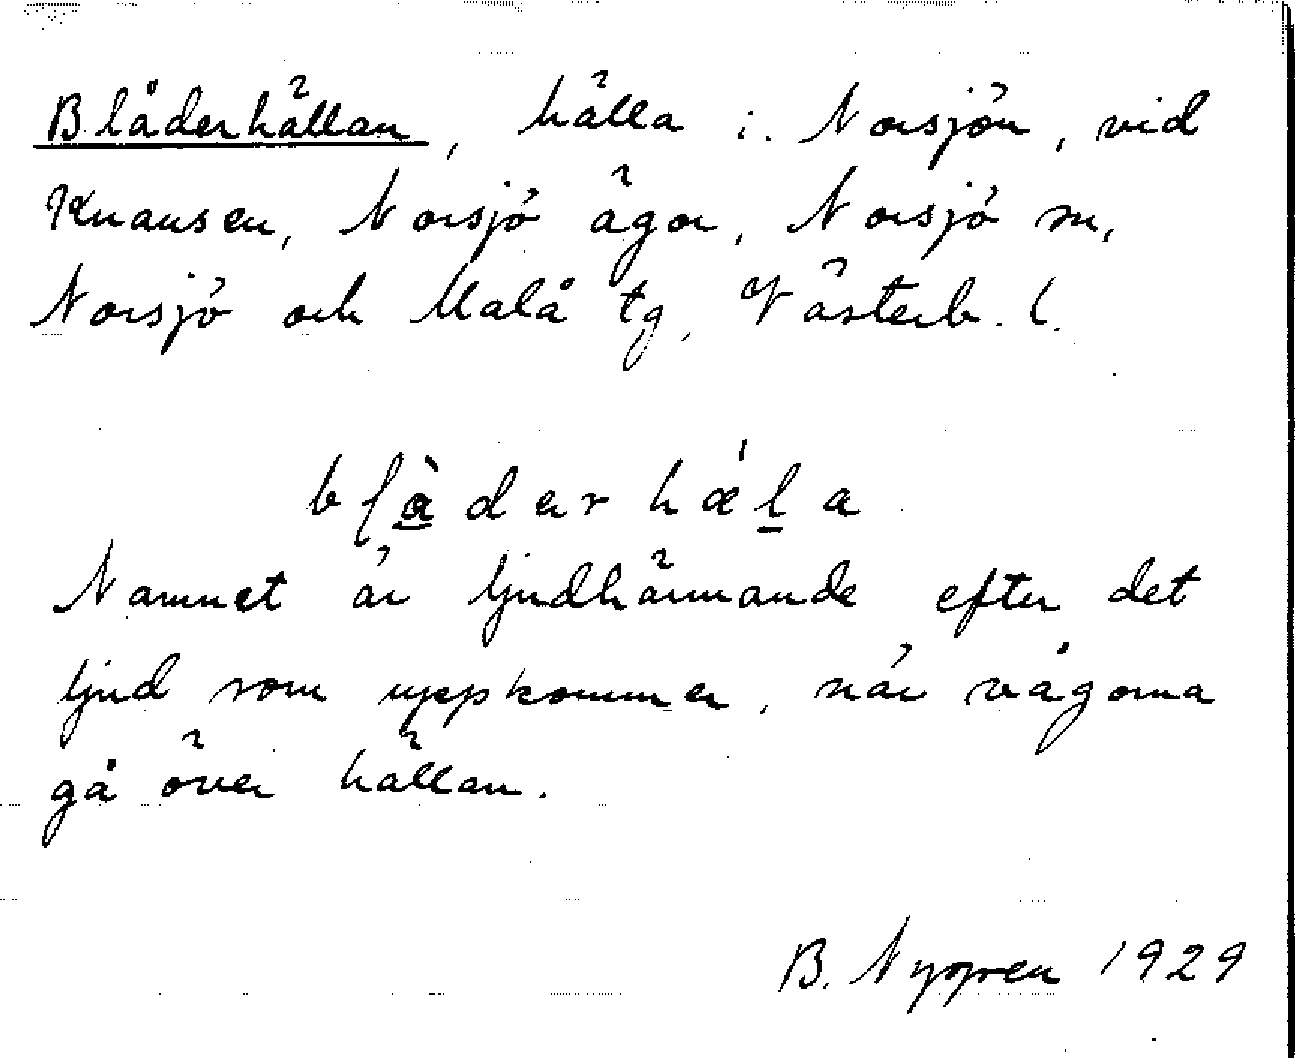 Blåderhällan, hälla i Norsjön, vid
Knausen, Norsjö ägor, Norsjö sn,
Norsjö och Malå tg, Västerb. l.
bɭàderhæ̍l̲a
Namnet är ljudhärmande efter det
ljud som uppkommer, när vågorna
gå över hällan.
B. Nygren 1929